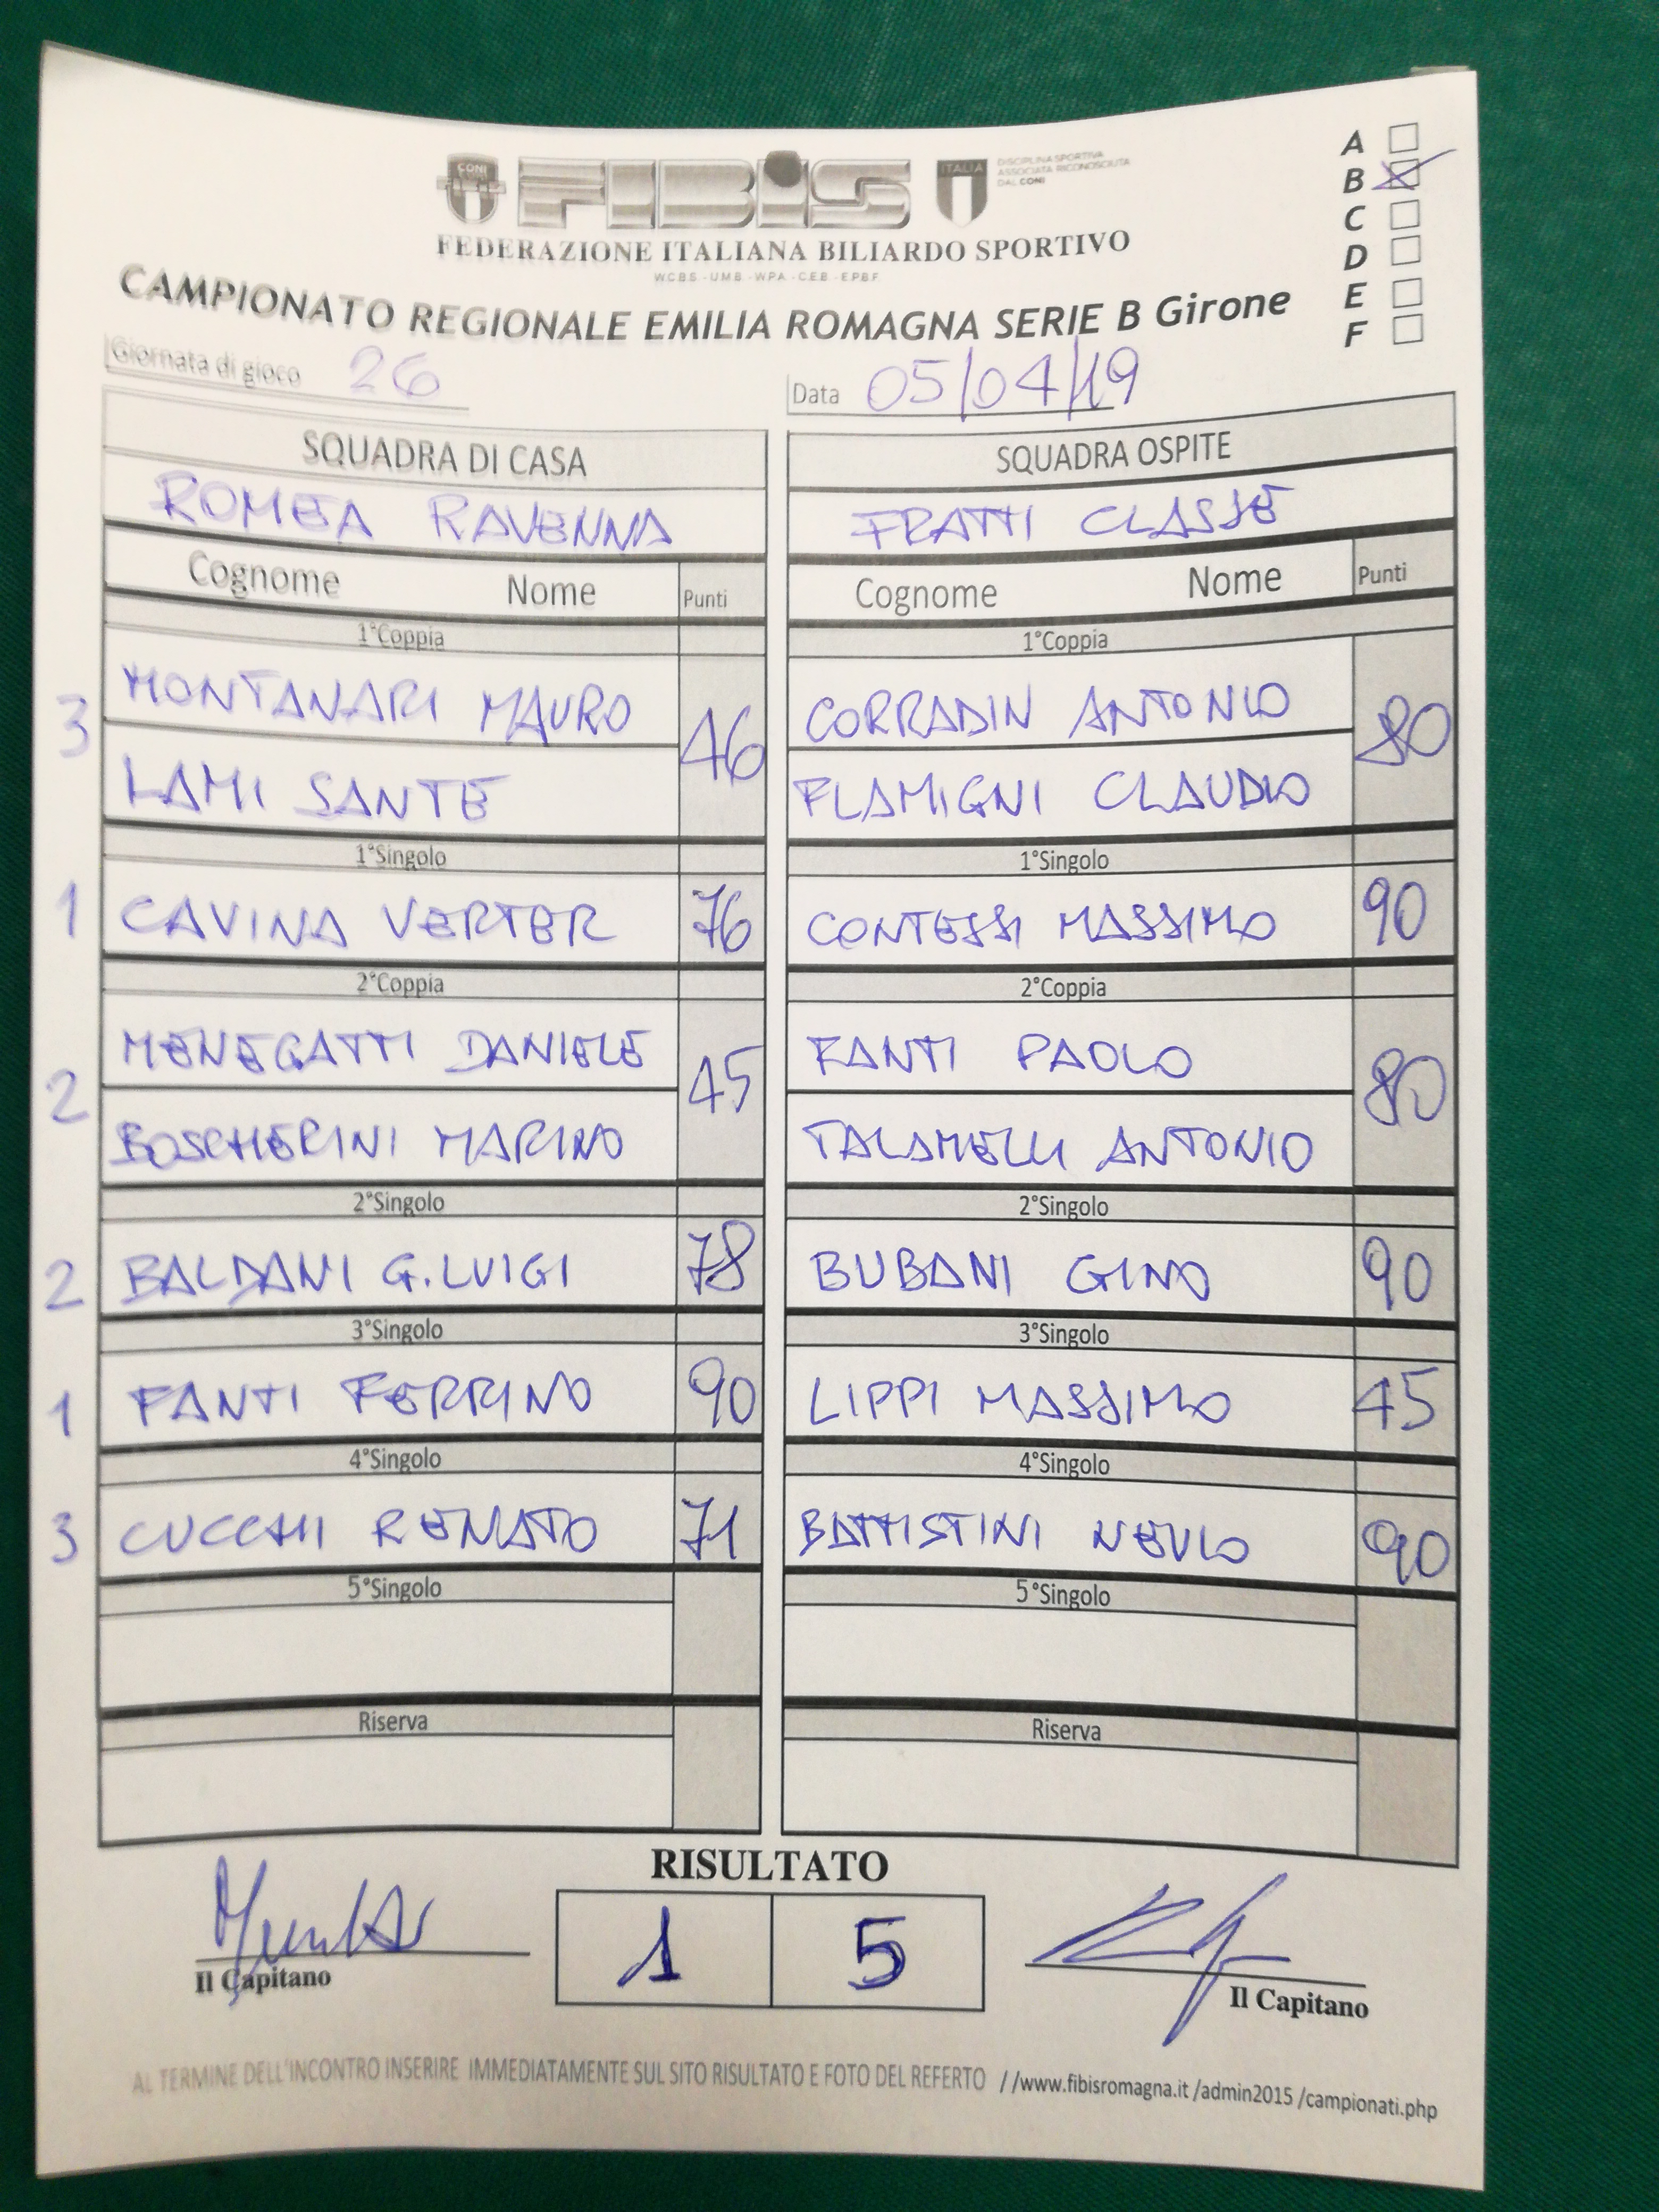 CONI
FIBiS
ITALIA
DISCIPLINA SPORTIVA
ASSOCIATA RICONOSCIUTA
DAL CONI
FEDERAZIONE ITALIANA BILIARDO SPORTIVO
WCBS - UMB - WPA - CEB - EPBF
CAMPIONATO REGIONALE EMILIA ROMAGNA SERIE B Girone
A
B
C
D
E
F
Giornata di gioco 26
Data 05/04/19
SQUADRA DI CASA
SQUADRA OSPITE
ROMEA RAVENNA
FRATTI CLASSE
Cognome Nome Punti
Cognome Nome Punti
1°Coppia
1°Coppia
3 MONTANARI MAURO 46
CORRADIN ANTONIO 80
LAMI SANTE
FLAMIGNI CLAUDIO
1°Singolo
1°Singolo
1 CAVINA VERTER 76
CONTESSI MASSIMO 90
2°Coppia
2°Coppia
2 MENEGATTI DANIELE 45
FANTI PAOLO 80
BOSCHERINI MARINO
TALAMELLI ANTONIO
2°Singolo
2°Singolo
2 BALDANI G.LUIGI 78
BUBANI GINO 90
3°Singolo
3°Singolo
1 FANTI FERRINO 90
LIPPI MASSIMO 45
4°Singolo
4°Singolo
3 CUCCHI RENATO 71
BATTISTINI NEVIO 90
5°Singolo
5°Singolo
Riserva
Riserva
RISULTATO
1 5
Il Capitano
Il Capitano
AL TERMINE DELL'INCONTRO INSERIRE IMMEDIATAMENTE SUL SITO RISULTATO E FOTO DEL REFERTO //www.fibisromagna.it /admin2015 /campionati.php